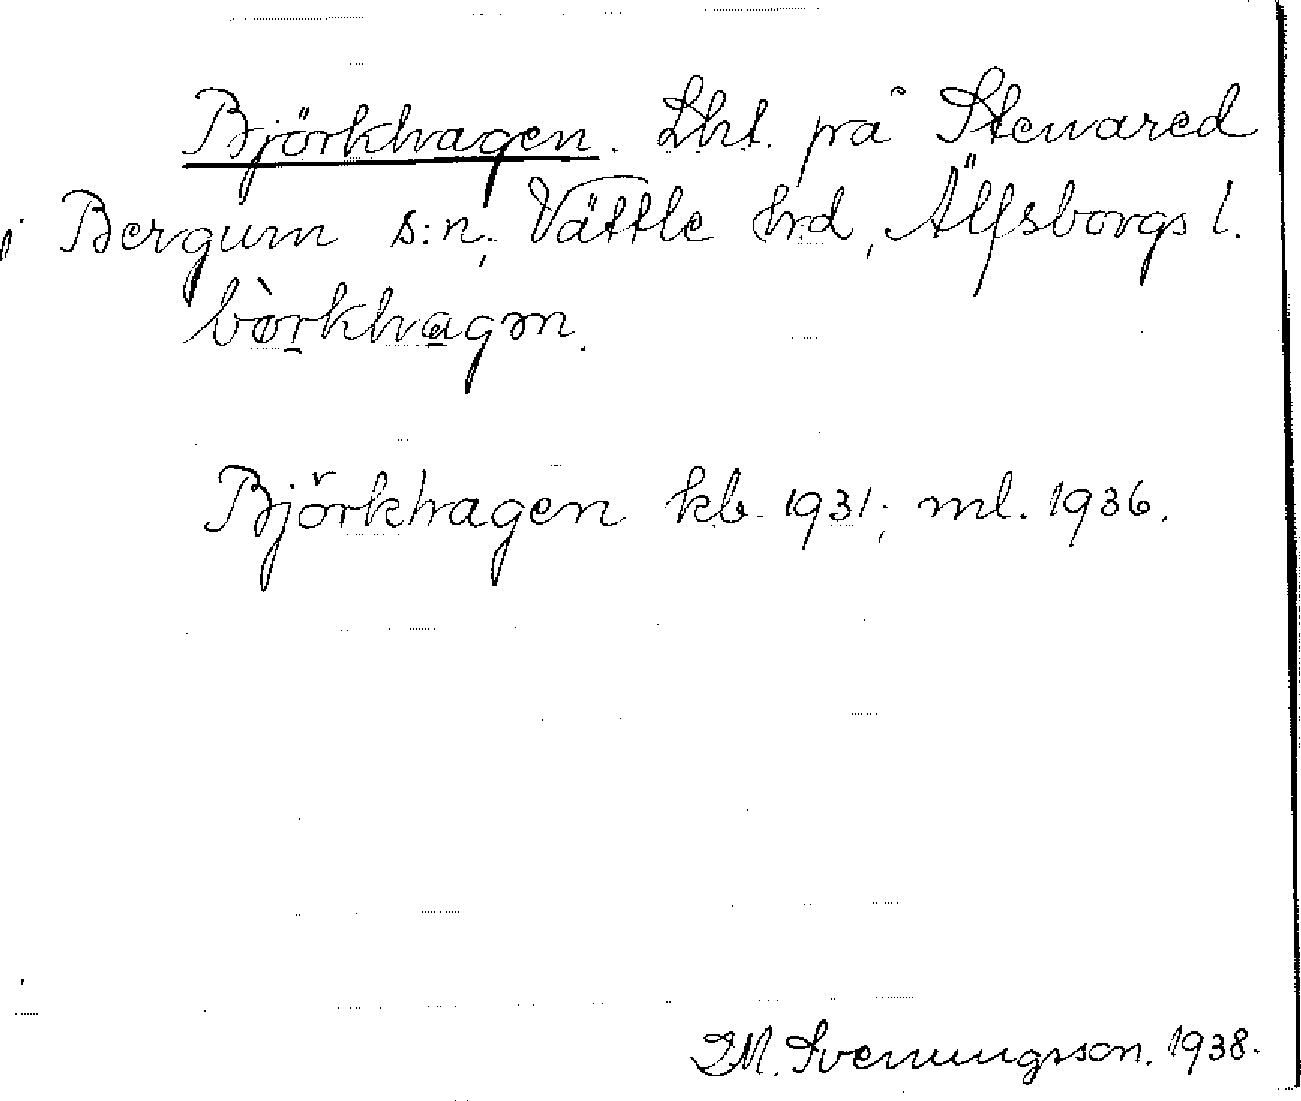 Björkhagen. Lht. på Stenared
i Bergum s:n, Vättle hrd, Älfsborgs l.
bòrkhagən.
Björkhagen kb. 1931; ml. 1936.
M. Svenungsson. 1938.